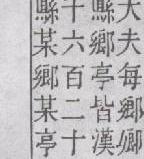 大夫每鄉卿
縣鄉亭皆漢
十六百二十
縣某鄉某亭